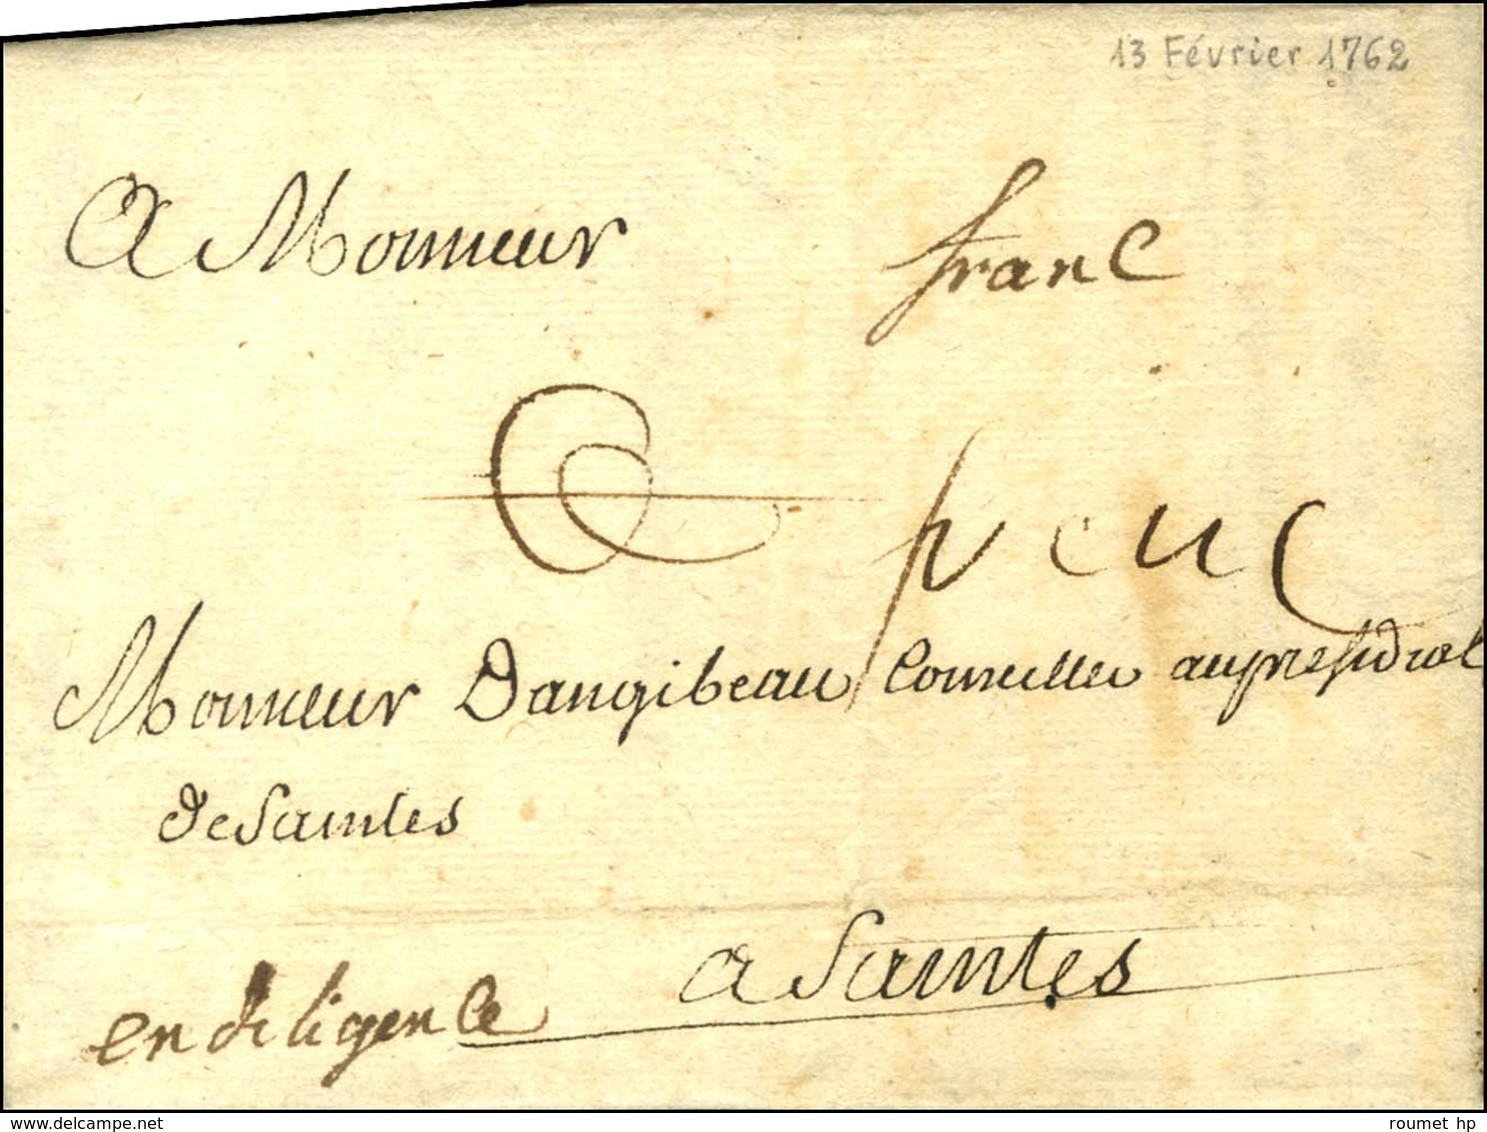 13 Février 1762
A Monsieur
franc
Monsieur Dangibeau Conseiller au presidial
de Saintes
a Saintes
en diligence
delcampe.net
roumet hp